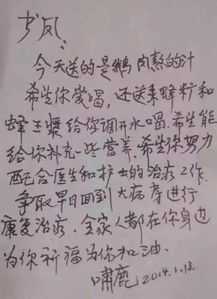 今天送的是鹅肉熬的汁
希望你爱喝，还送来蜂籽和
蜂王浆给你调开水喝，希望能
给你补充一些营养，希望你努力
配合医生和护士的治疗工作，
争取早日回到大病房进行
康复治疗，全家人都在你身边
为你祈福为你加油。
啸鹿 2014.1.12